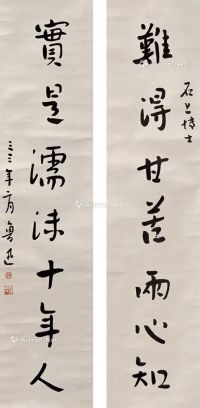 難得甘苦兩心知
石上博士
實是濡沫十年人
三三年 月 魯迅
Artron.Net